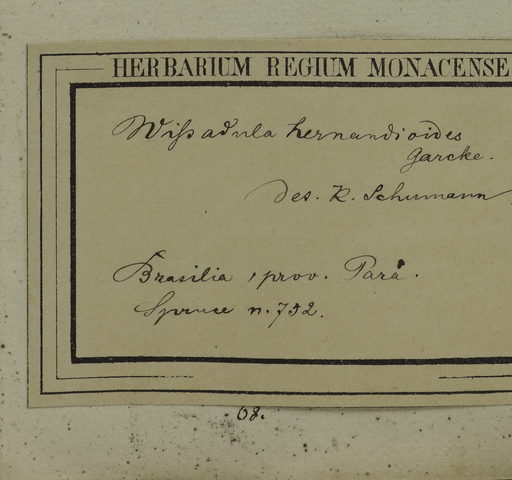 HERBARIUM REGIUM MONACENSE
Wißadula hernandioides
Garcke.
Des. K. Schumann
Brasilia, prov. Pará.
Spruce n. 732.
68.